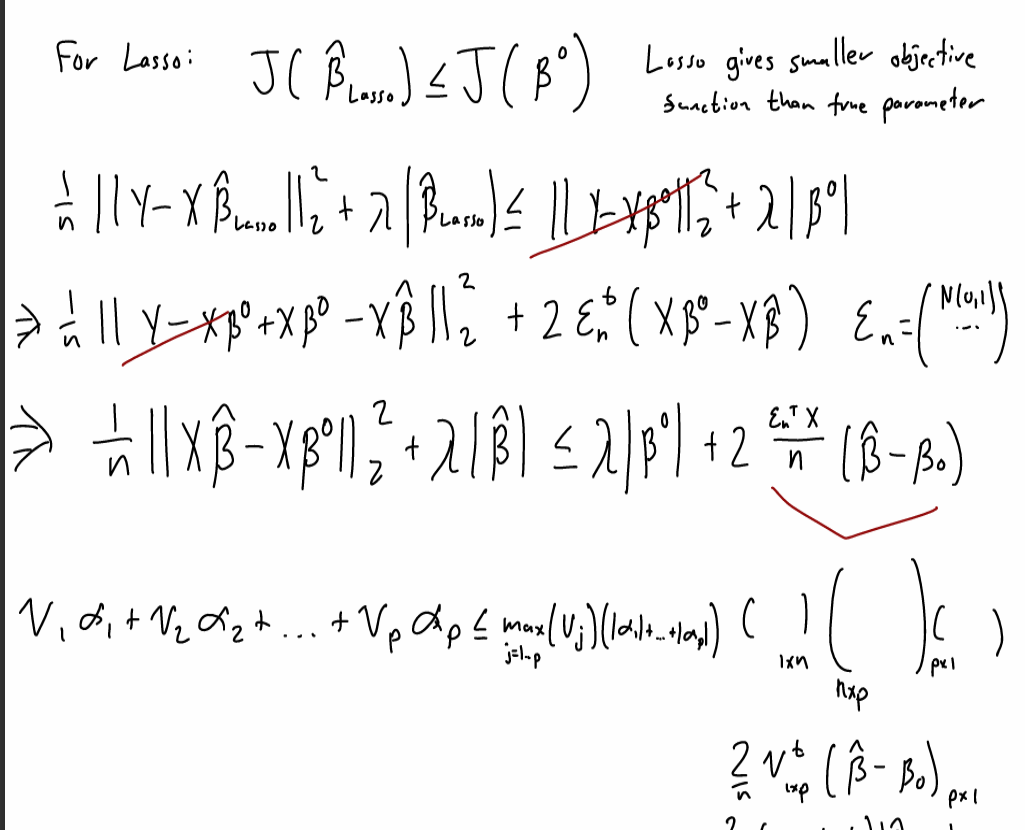 For Lasso: J(β̂_Lasso) ≤ J(β⁰) Lasso gives smaller objective
function than true parameter
1/n ||Y-Xβ̂_Lasso||₂² + λ|β̂_Lasso| ≤ ||Y-Xβ⁰||₂² + λ|β⁰|
⇒ 1/n ||Y-Xβ⁰+Xβ⁰-Xβ̂||₂² + 2 ε_n^t (Xβ⁰-Xβ̂) ε_n = (N(0,1) ...)
⇒ 1/n ||Xβ̂-Xβ⁰||₂² + λ|β̂| ≤ λ|β⁰| + 2 ε_n^T X/n (β̂-β₀)
V₁α₁+V₂α₂+...+V_pα_p ≤ max_{j=1-p}(V_j)(|α₁|+...+|α_p|) ( )_{1×n} ( )_{n×p} ( )_{p×1}
2/n V^t_{1×p} (β̂-β₀)_{p×1}